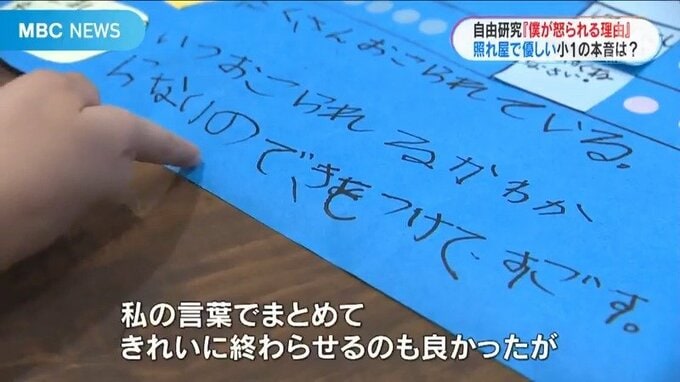 MBC NEWS
自由研究『僕が怒られる理由』
照れ屋で優しい小1の本音は？
くさんおこられている。
いつおこられるかわか
らないので、きをつけて、すごす。
私の言葉でまとめて
きれいに終わらせるのも良かったが